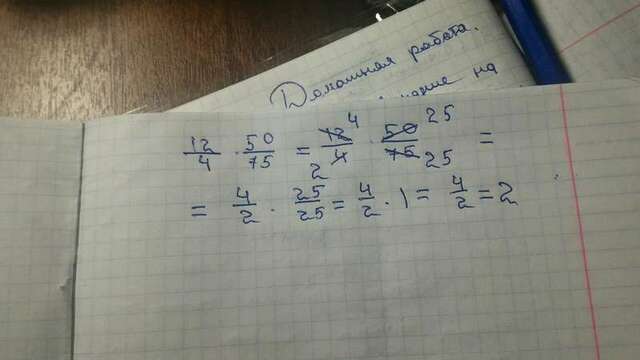 Домашная работа.
на
12/4 · 50/75 = 12 4/4 2 · 50 25/75 25 =
= 4/2 · 25/25 = 4/2 · 1 = 4/2 = 2